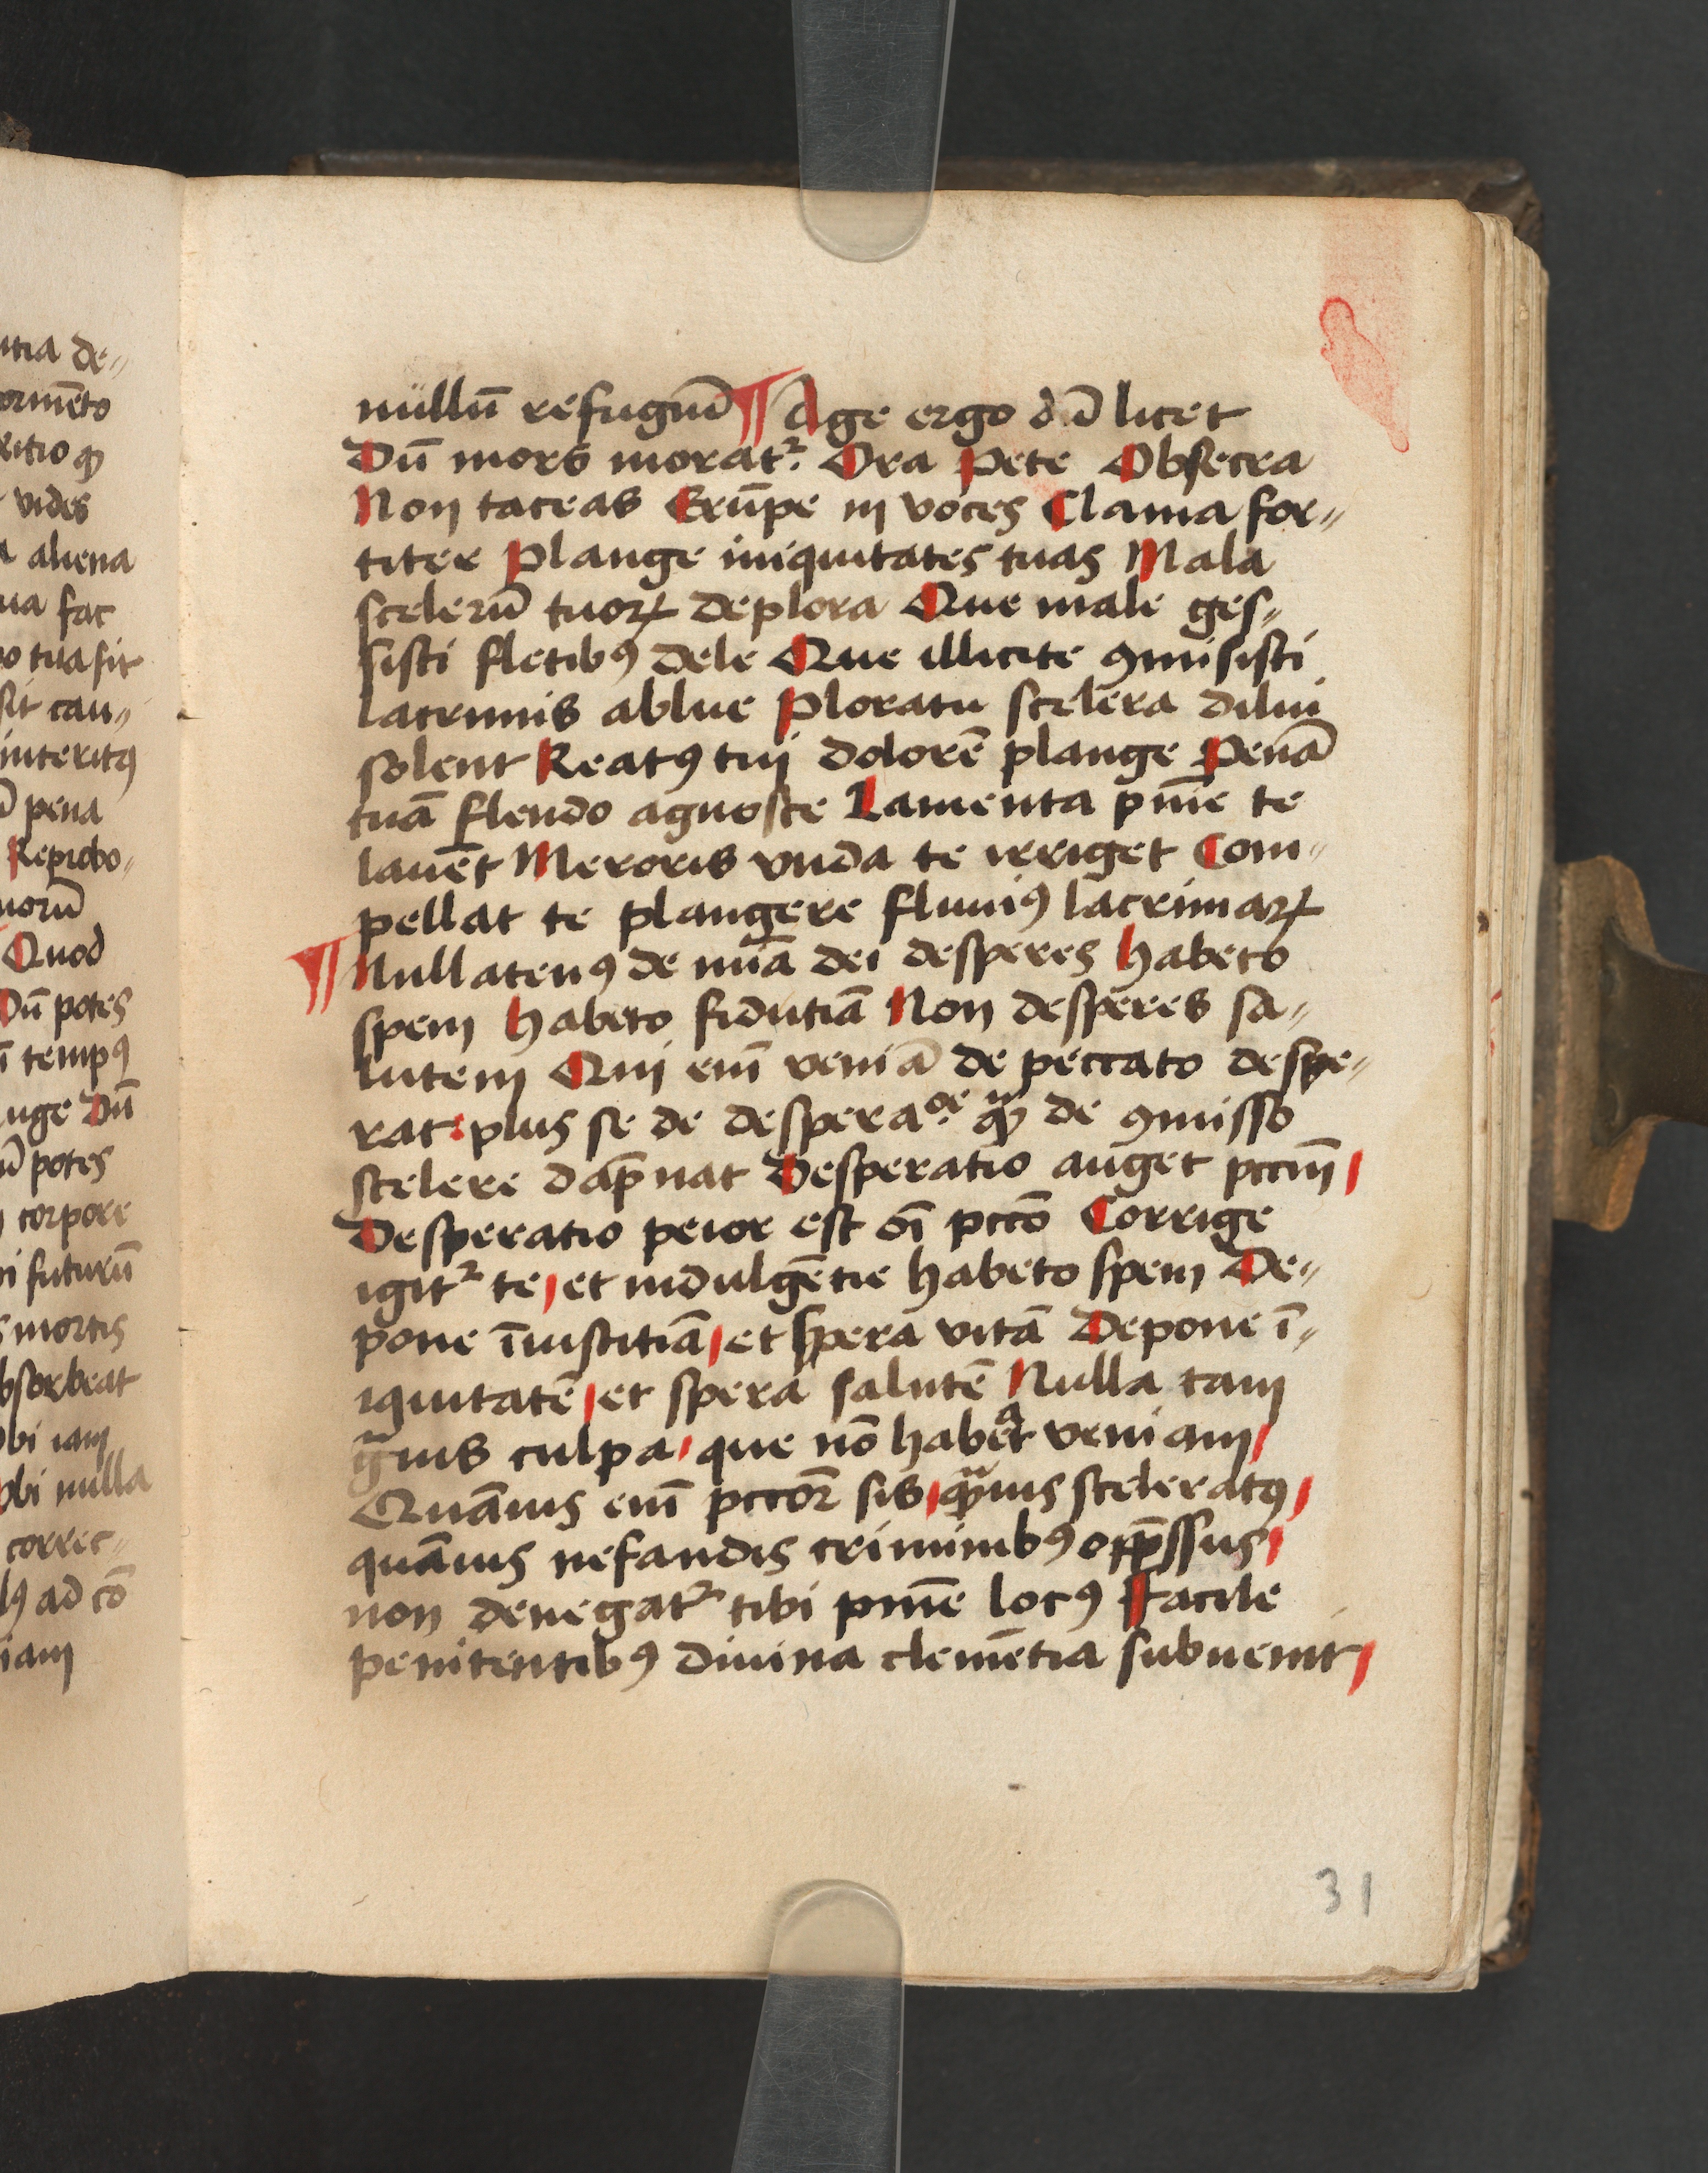 utia de„
ormēto
vides
aliena
ua fac
o tua sit
sit cau„
interitꝰ
pena
Reprobo„
uorū
Quod
Dū potes
tempꝰ
uge Dū
ū potes
corpore
i futurū
mortis
bsorbeat
bi iam
bi nulla
correc„
ad cō
iam
nullū refugiū ¶ Age ergo dū licet
Dū mors moratᷣ Ora Pete Obsecra
Non taceas Erūpe in voces Clama for„
titer Plange iniquitates tuas Mala
scelerū tuoꝝ deplora Que male ges„
sisti fletibꝰ dele Que illicite ꝯmisisti
lacrimis ablue Ploratu scelera dilui
solent Reatꝰ tui dolorē plange Penā
tuā flendo agnosce Lamenta pn̄ie te
lauēt Meroris vnda te irriget Com„
pellat te plangere fluuiꝰ lacrimaꝝ
¶ Nullatenꝰ de mīa dei desperes habeto
spem habeto fidutiā Non desperes sa„
lutem Qui em̄ veniā de peccato despe„
rat: plus se de desperaᵒᵉ ꝙ̄ de ꝯmisso
scelere dāpnat Desperatio auget pccm̄
Desperatio peior est oī pccō Corrige
igitᷣ te et indulgētie habeto spem De„
pone īiusticiā et spera vitā Depone ī„
iquitatē et spera salutē Nulla tam
gᷓuis culpa que nō habeᵃt veniam
Quāuis em̄ pccōr sis qᷓuis sceleratꝰ
quāuis nefandis criminibꝰ opp̄ssus
non denegatᷣ tibi pn̄ie locꝰ Facile
penitentibꝰ diuina clemētia subuenit
31